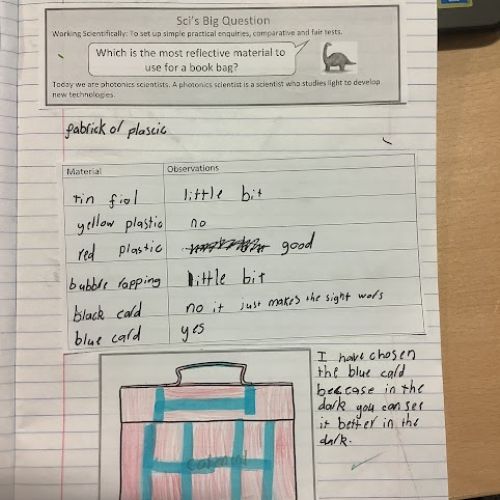 Sci's Big Question
Working Scientifically: To set up simple practical enquiries, comparative and fair tests.
Which is the most reflective material to
use for a book bag?
Today we are photonics scientists. A photonics scientist is a scientist who studies light to develop
new technologies.
fabrick or plascic
Material Observations
tin fiol little bit
yellow plastic no
red plastic good
bubble rapping little bit
black card no it just makes the sight wors
blue card yes
I have chosen
the blue card
becease in the
dark you can see
it better in the
dark.